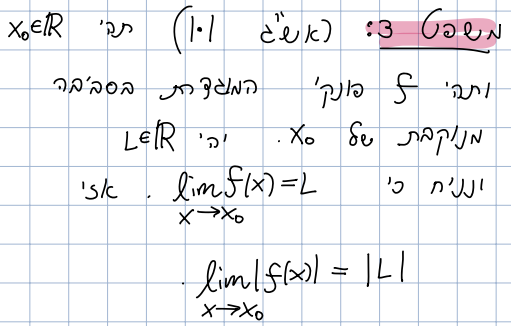 משפט 3: (אש"ג |·|) תהי x₀∈ℝ
ותהי f פונק' המוגדרת בסביבה
מנוקבת של x₀. יהי L∈ℝ
ונניח כי lim f(x) = L . אזי
x→x₀
lim |f(x)| = |L| .
x→x₀